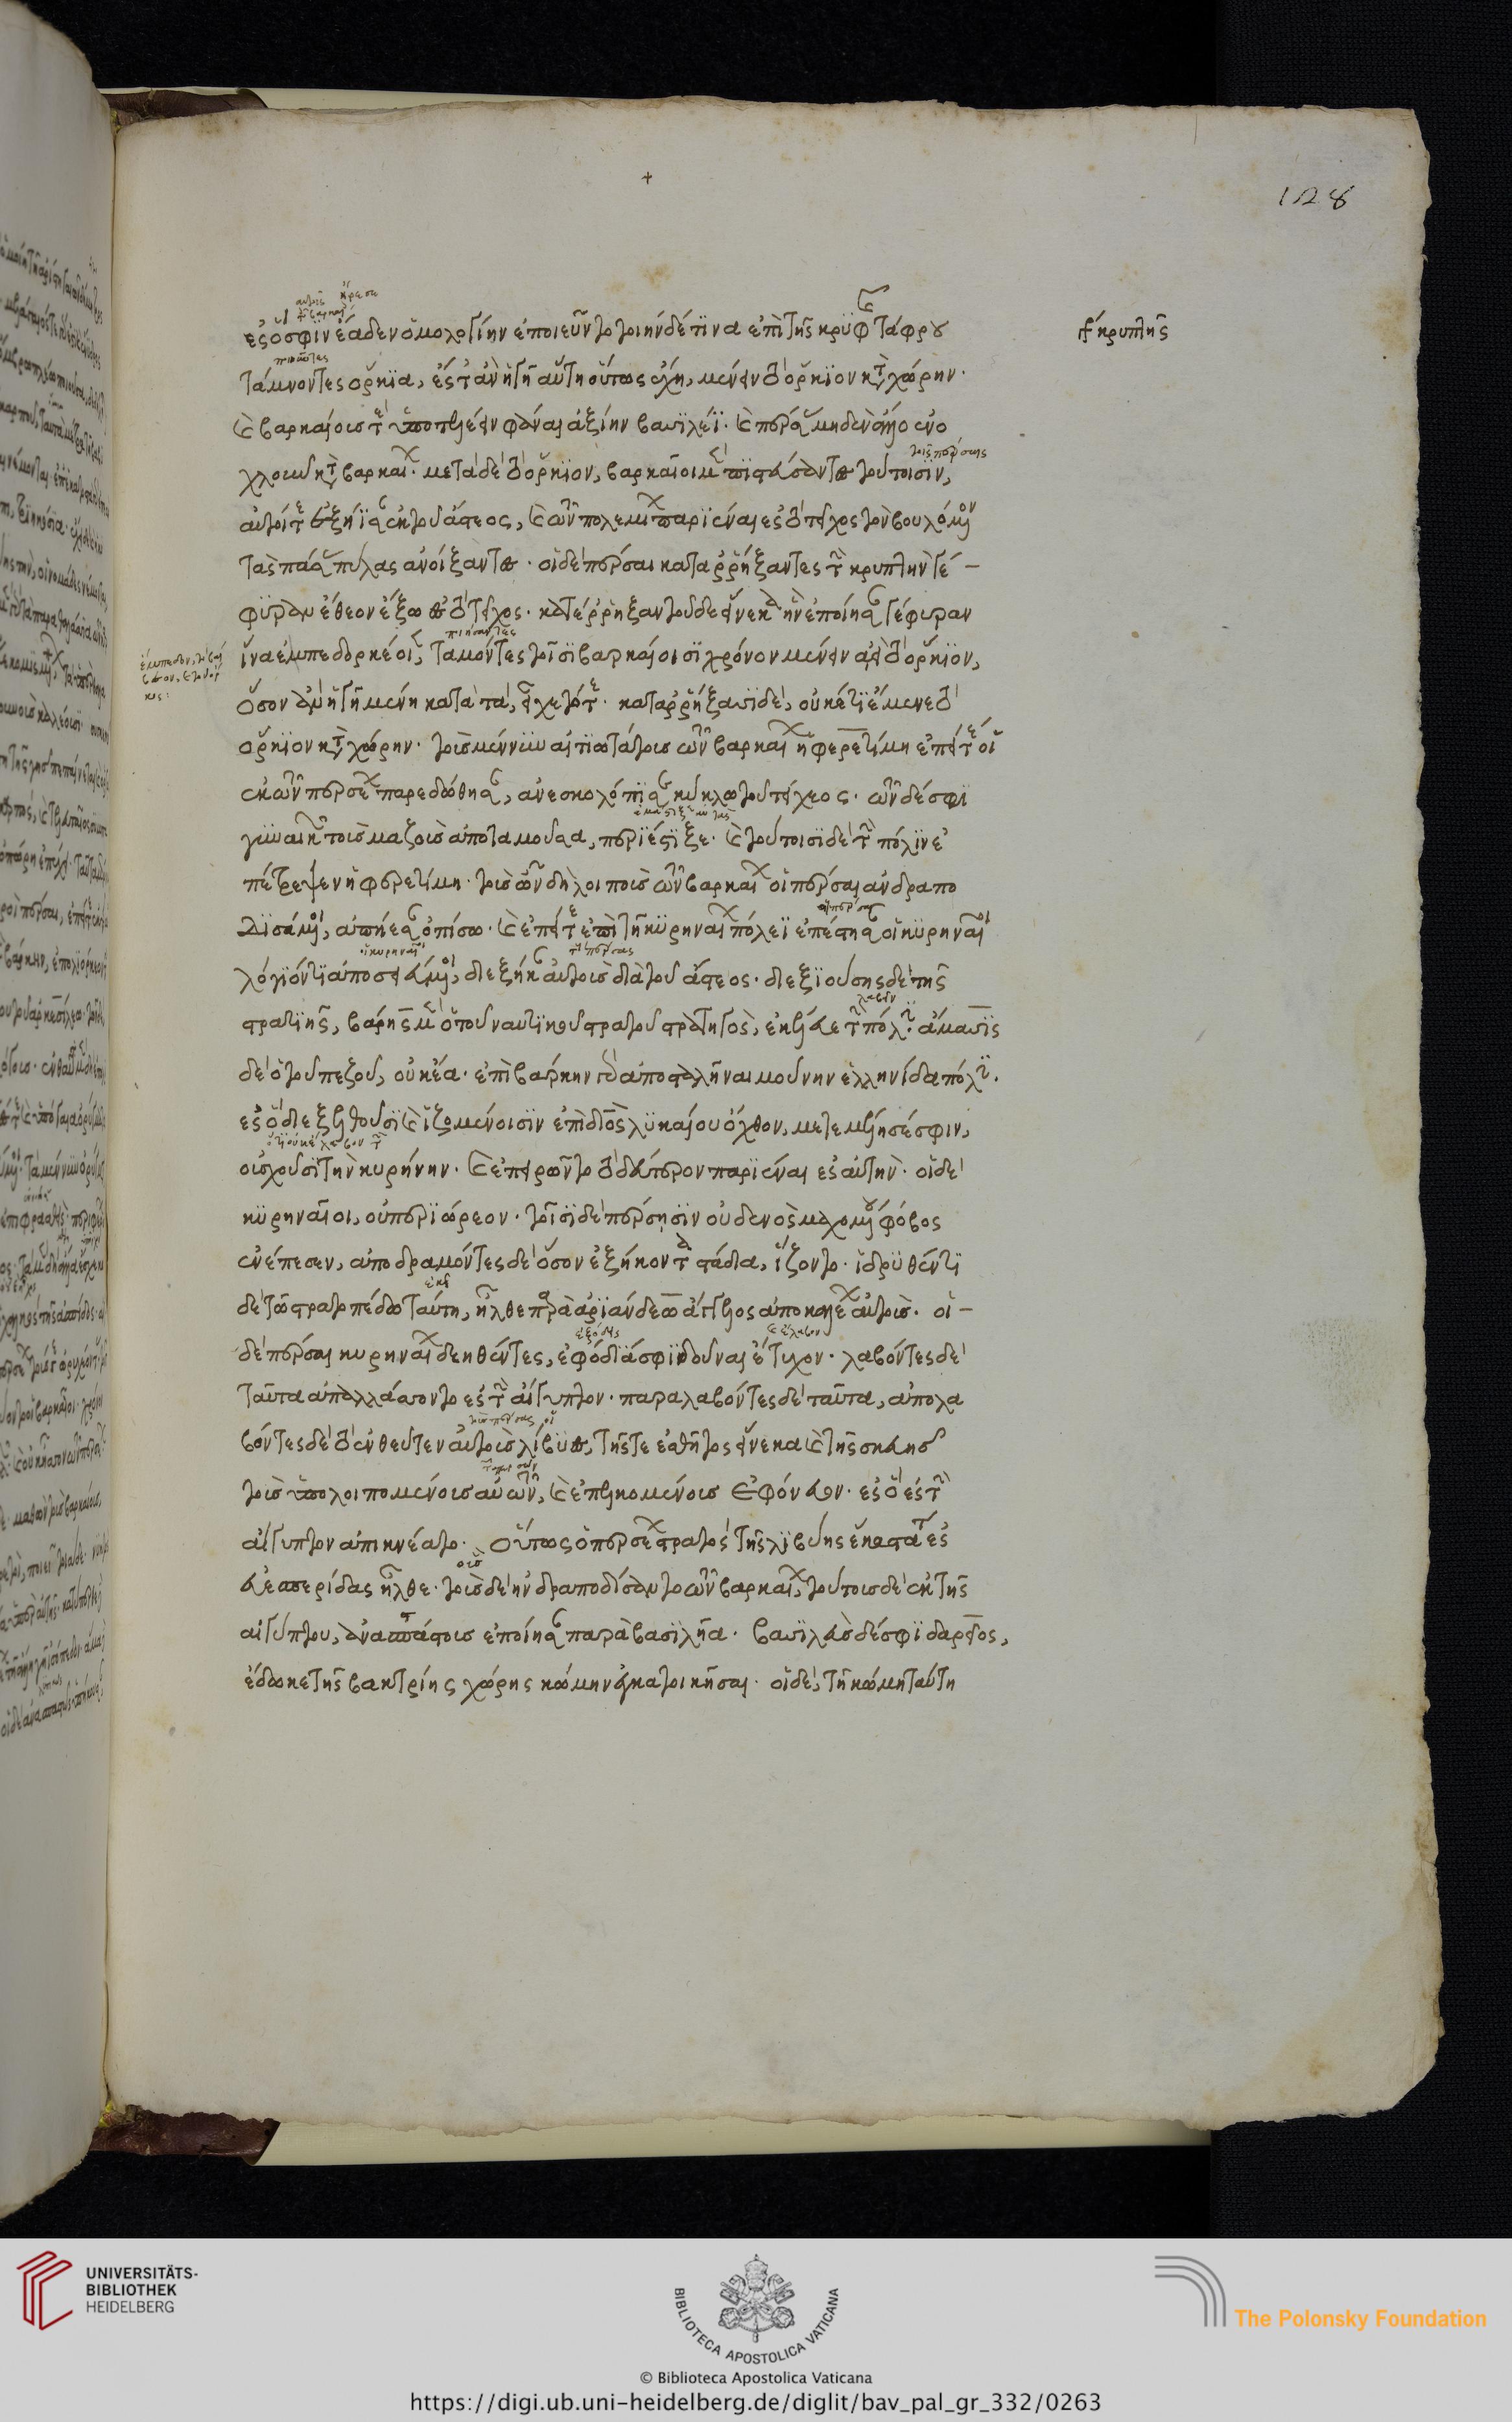 128
ἐς ὅ σφιν ἕαδεν ὁμολογίην ἐποιεῦντο τοιήνδέ τινα ἐπὶ τῆς κρυφ τάφρου
τῆς κρυπτῆς
τάμνοντες ὅρκια, ἔς τ' ἂν ἡ γῆ αὕτη οὕτως ἔχη, μένειν τὸ ὅρκιον κατὰ χώρην.
καὶ βαρκαίους τε ὑποτελέειν φάναι ἀξίην βασιλέϊ. καὶ πέρσας μηδὲν ἄλλο νεο
χμοῦν κατὰ βαρκαίους. μετὰ δὲ τὸ ὅρκιον, βαρκαῖοι μὲν πιστεύσαντες τούτοισιν,
αὐτοί τε ἐξήϊσαν ἐκ τοῦ ἄστεος, καὶ τῶν πολεμίων παριέναι ἐς τὸ τεῖχος τὸν βουλόμενον
τὰς πάσας πύλας ἀνοίξαντες. οἱ δὲ πέρσαι καταρρήξαντες τὴν κρυπτὴν γέ-
φυραν ἔθεον ἔξω ἐς τὸ τεῖχος. κατέρρηξαν τοῦδε εἵνεκα τὴν ἐποίησαν γέφυραν
ἵνα ἐμπεδορκέοιεν, ταμόντες τοῖσι βαρκαίοισι χρόνον μένειν αἰεὶ τὸ ὅρκιον,
ὅσον ἂν ἡ γῆ μένη κατὰ τὰ, εἶχε τότε. καταρρήξασι δὲ, οὐκέτι ἔμενε τὸ
ὅρκιον κατὰ χώρην. τοὺς μέν νυν αἰτιωτάτους τῶν βαρκαίων ἡ φερετίμη ἐπεί τέ οἱ
ἐκ τῶν περσέων παρεδόθησαν, ἀνεσκολόπισε κύκλω τοῦ τείχεος. τῶν δέ σφι
γυναικῶν τοὺς μαζοὺς ἀποταμοῦσα, περιέστιξε. καὶ τούτοισι δὲ τὴν πόλιν ἐ
πέτρεψεν ἡ φερετίμη. τοὺς ὦν δὴ λοιποὺς τῶν βαρκαίων οἱ πέρσαι ἀνδραπο
δισάμενοι, ἀπήεσαν ὀπίσω. καὶ ἐπεί τε ἐπὶ τῆ κυρηναίων πόλει ἐπέστησαν οἱ κυρηναῖοι
λόγιόν τι ἀποσειόμενοι, διεξῆκαν αὐτοὺς διὰ τοῦ ἄστεος. διεξιούσης δὲ τῆς
στρατιῆς, βάρης μὲν ὁ τοῦ ναυτικοῦ στρατοῦ στρατηγὸς, ἐκέλευε τὴν πόλιν. ἄμασις
δὲ ὁ τοῦ πεζοῦ, οὐκ ἔα. ἐπὶ βάρκην γὰρ ἀποσταλῆναι μούνην ἑλληνίδα πόλιν.
ἐς ὃ διεξελθοῦσι καὶ ἱζομένοισιν ἐπὶ διὸς λυκαίου ὄχθον, μετεμέλησέ σφιν,
οὐ σχοῦσι τὴν κυρήνην. καὶ ἐπειρῶντο τὸ δεύτερον παριέναι ἐς αὐτήν. οἱ δὲ
κυρηναῖοι, οὐ περιώρεον. τοῖσι δὲ πέρσησιν οὐδενὸς μαχομένου φόβος
ἐνέπεσεν, ἀποδραμόντες δὲ ὅσον ἑξήκοντα στάδια, ἵζοντο. ἱδρυθέντι
δὲ τῶ στρατοπέδω ταύτη, ἦλθε παρὰ ἀρυάνδεω ἄγγελος ἀποκαλέων αὐτούς. οἱ-
δὲ πέρσαι κυρηναίων δεηθέντες, ἐφόδια σφι δοῦναι ἔτυχον. λαβόντες δὲ
ταῦτα ἀπαλλάσσοντο ἐς τὴν αἴγυπτον. παραλαβόντες δὲ ταῦτα, ἀπολα
βόντες δὲ τὸ ἐνθεῦτεν αὐτοὺς λίβυες, τῆς τε ἐσθῆτος εἵνεκα καὶ τῆς σκευῆς
τοὺς ὑπολοιπομένους αὐτῶν, καὶ ἐπελκομένους ἐφόνευον. ἐς ὃ ἐς τὴν
αἴγυπτον ἀπικνέατο. οὗτος ὁ περσέων στρατὸς τῆς λιβύης ἑκαστάτω ἐς
εὐεσπερίδας ἦλθε. τοὺς δὲ ἠνδραποδίσαντο τῶν βαρκαίων, τούτους δὲ ἐκ τῆς
αἰγύπτου, ἀνασπάστους ἐποίησαν παρὰ βασιλῆα. βασιλεὺς δέ σφι δαρεῖος,
ἔδωκε τῆς βακτρίης χώρης κώμην ἐγκατοικῆσαι. οἱ δὲ, τῆ κώμη ταύτη
UNIVERSITÄTS-
BIBLIOTHEK
HEIDELBERG
BIBLIOTECA APOSTOLICA VATICANA
The Polonsky Foundation
© Biblioteca Apostolica Vaticana
https://digi.ub.uni-heidelberg.de/diglit/bav_pal_gr_332/0263